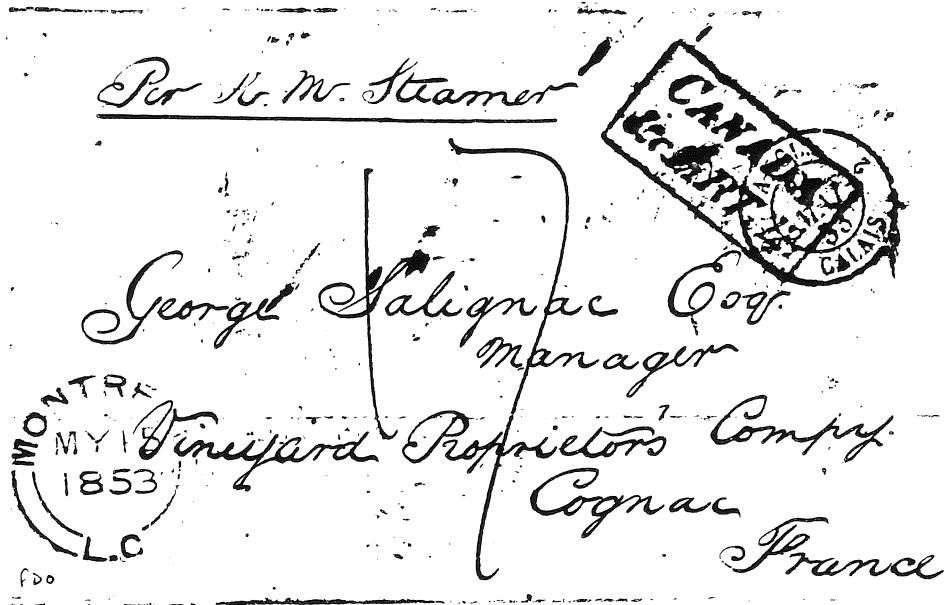 Per R. M. Steamer
CANADA
&c. ART.
CALAIS
17
George Salignac Esqr.
Manager
Vineyard Proprietor's Compy.
Cognac
France
MONTRE
MY 15
1853
L.C
FDO